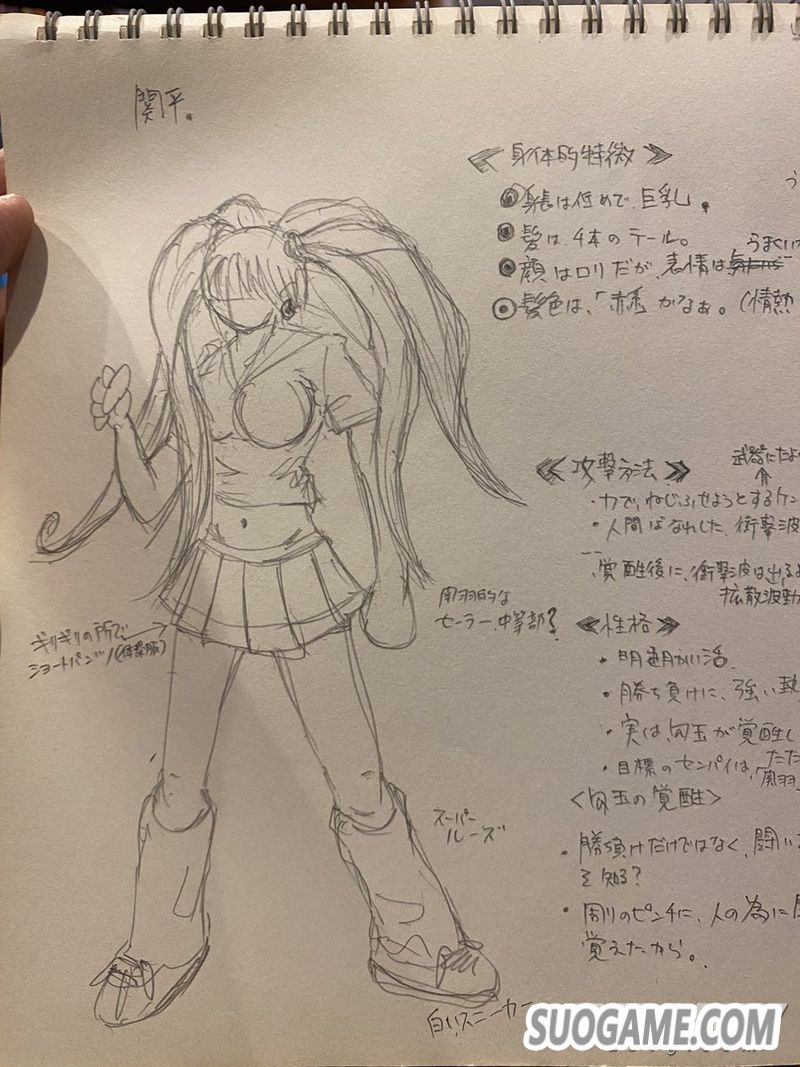 関平。
≪身体的特徴≫
身長は低めで、巨乳。
髪は、4本のテール。
うまくい
顔はロリだが、表情は
髪色は、「赤系かなぁ。(情熱
≪攻撃方法≫
武器にたよ
・力で、ねじふせようとするケン
・人間ばなれした、衝撃波
覚醒後に、衝撃波は出るよ
拡散波動
風羽的な
セーラー、中等部?
≪性格≫
ギリギリの所で、
ショートパンツ(体操服)
・明朗活
・勝ち負けに、強い
・実は、勾玉が覚醒し
・目標のセンパイは、
<勾玉の覚醒>
スーパー
ルーズ
・勝負けだけではなく、闘い
を知る?
・周りのピンチに、人の為に
覚えたから。
白いスニーカー
SUOGAME.COM